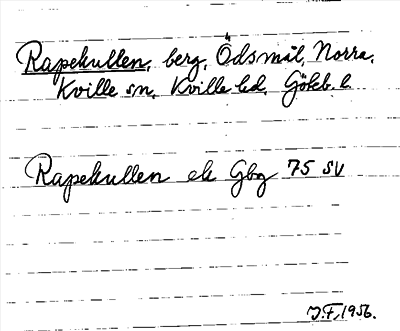 Rapekullen, berg, Ödsmål, Norra,
Kville sn, Kville hd, Göteb. l.
Rapekullen ek Gbg 75 SV
J.F, 1956.